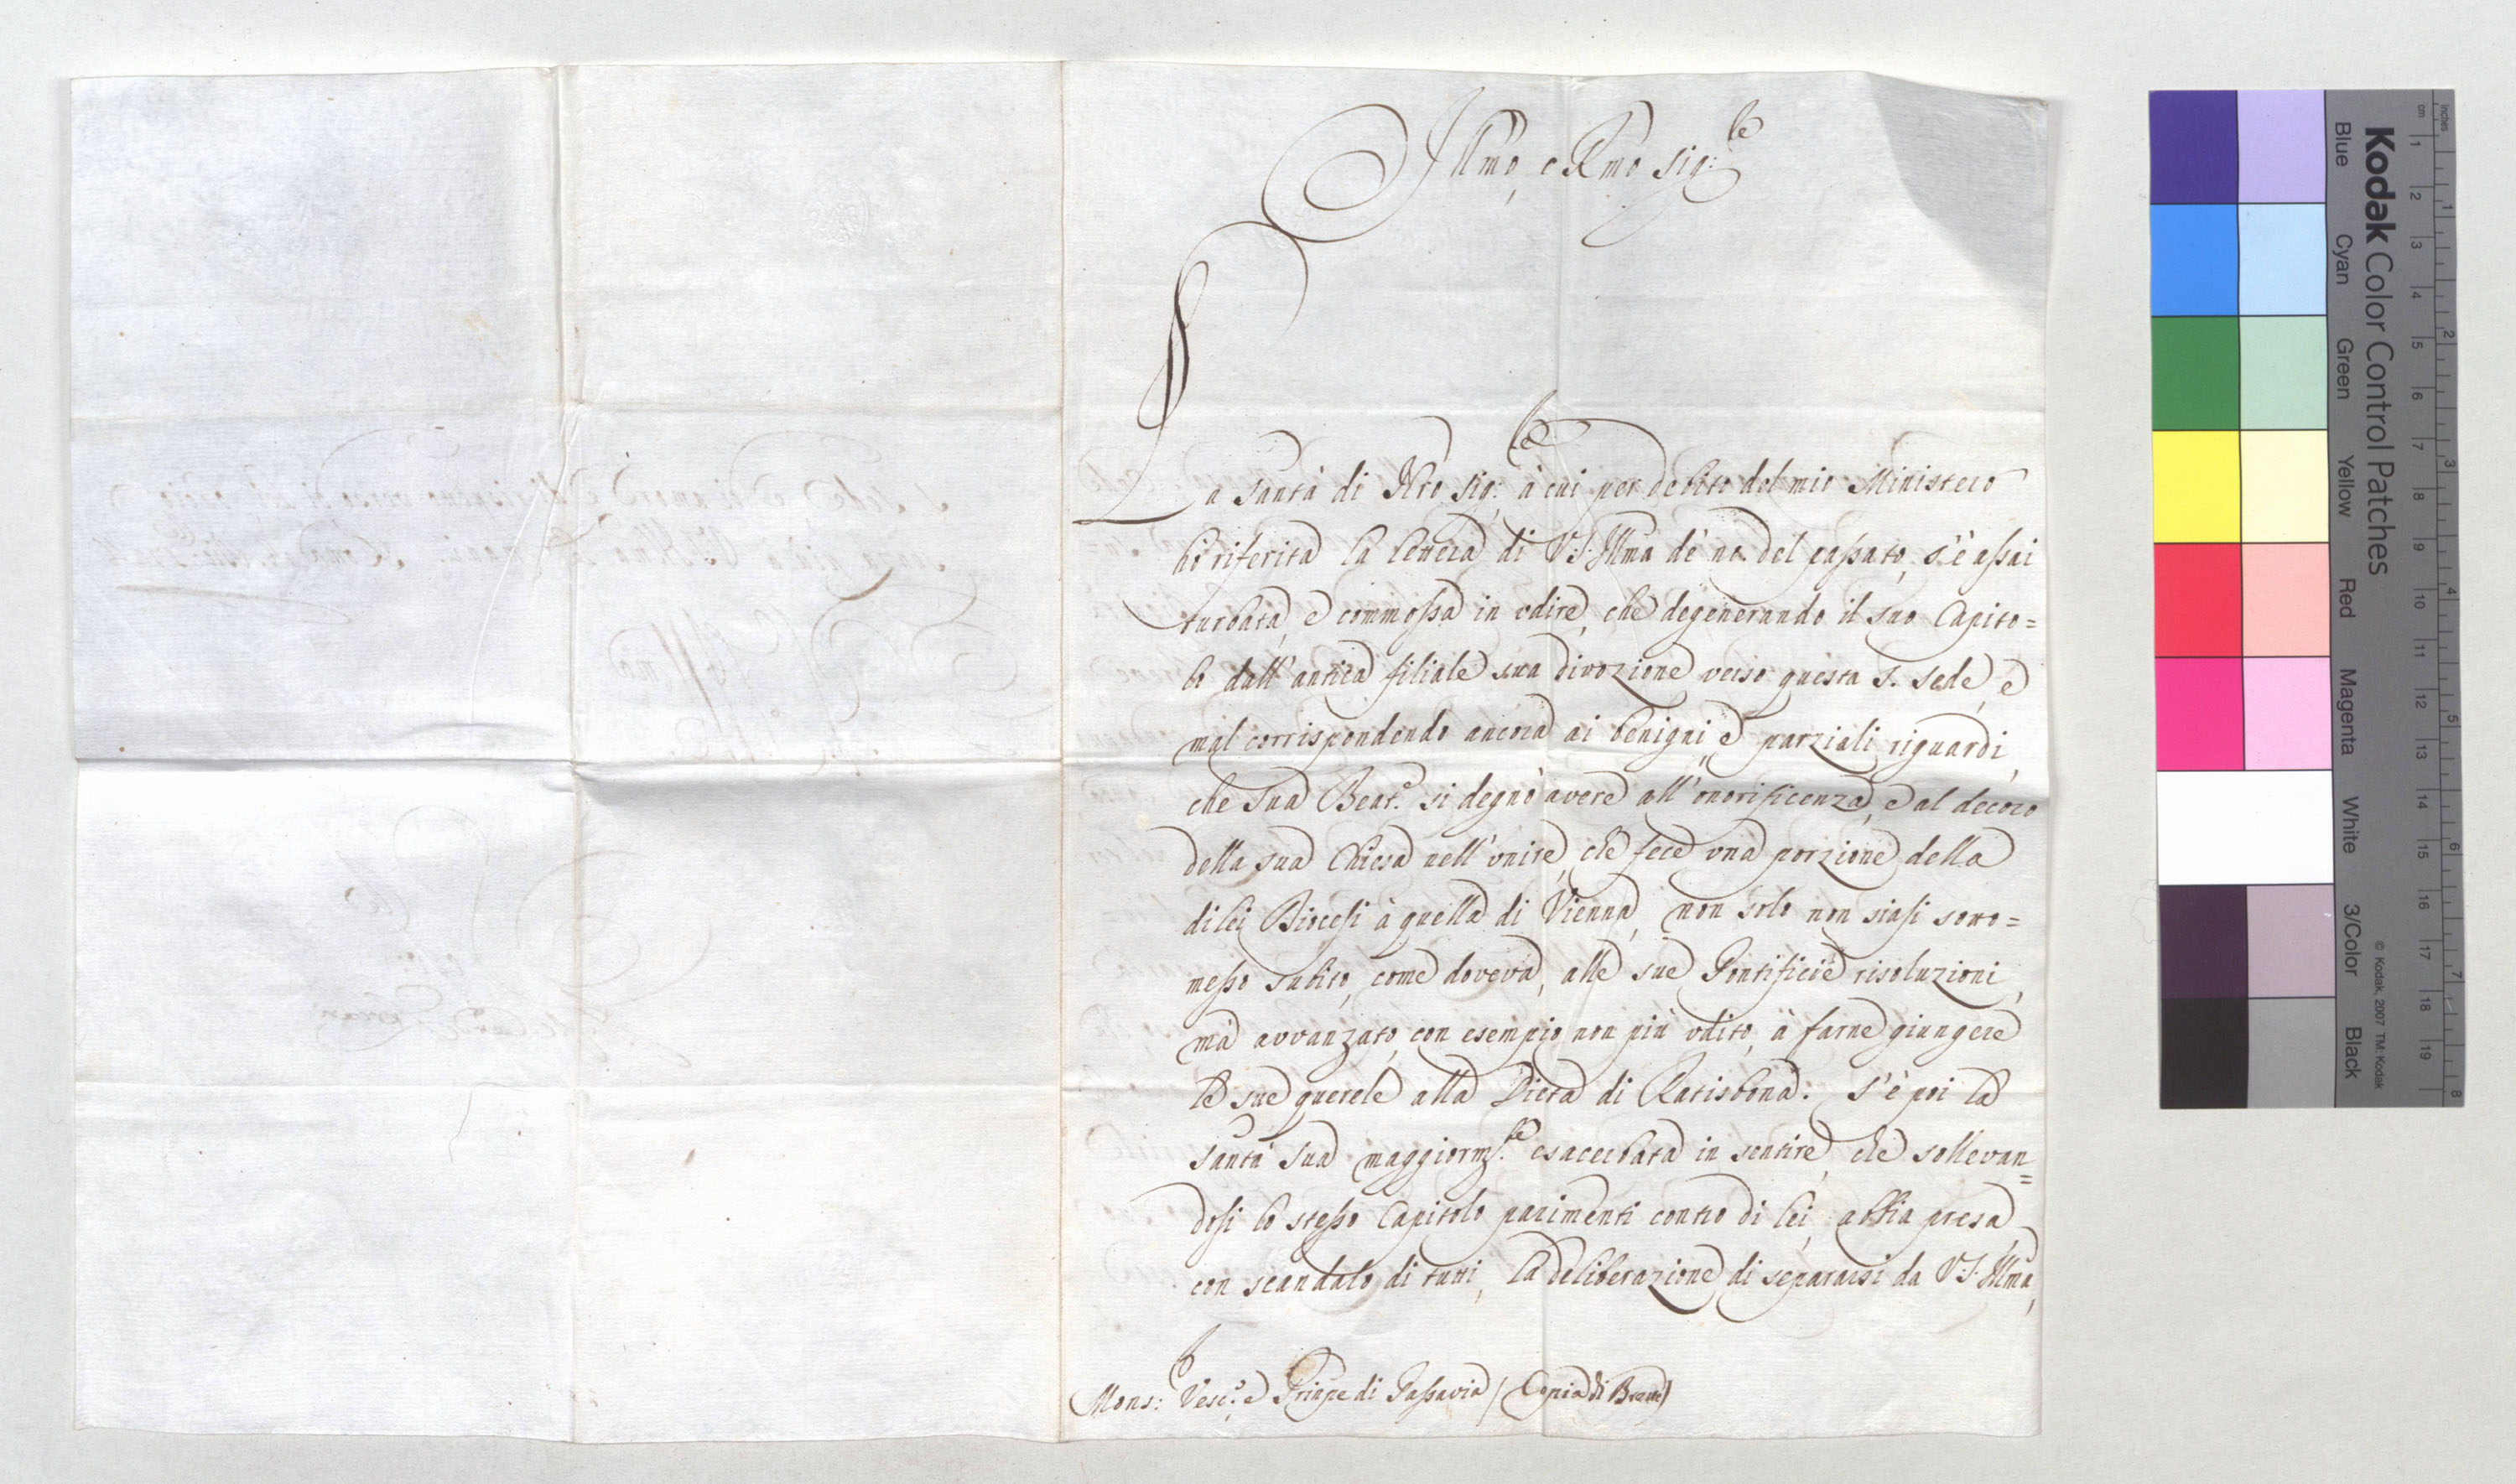 Illmo, e Rmo Sig:re
La Santà di Nro Sig:re à cui per debito del mio Ministero
hò riferita la lettera di V.S. Illma dè del passato, s'è assai
turbata, e commossa in udire, che degenerando il suo Capito=
lo dall'antica filiale sua divozione verso questa S. Sede, e
mal corrispondendo ancora ai benigni, e parziali riguardi,
che Sua Beat.e si degnò avere all'onorificenza, e al decoro
della sua Chiesa nell'unire, che fece una porzione della
di lei Diocesi à quella di Vienna, non solo non siasi sotto=
messo subito, come doveva, alle sue Pontificie risoluzioni,
mà avvanzato, con esempio non più udito, à farne giungere
le sue querele alla Dieta di Ratisbona: S'è poi la
Santà Sua maggiorm.te esacerbata in sentire, che sollevan=
dosi lo stesso Capitolo parimenti contro di lei, abbia presa,
con scandalo di tutti, la deliberazione di separarsi da V.S. Illma,
Mons:r Vesc.o e Prinpe di Passavia / Copia di Breve)
Kodak Color Control Patches
Blue Cyan Green Yellow Red Magenta White 3/Color Black
© Kodak, 2007 TM: Kodak
inches 1 2 3 4 5 6 7 8
cm 1 2 3 4 5 6 7 8 9 10 11 12 13 14 15 16 17 18 19